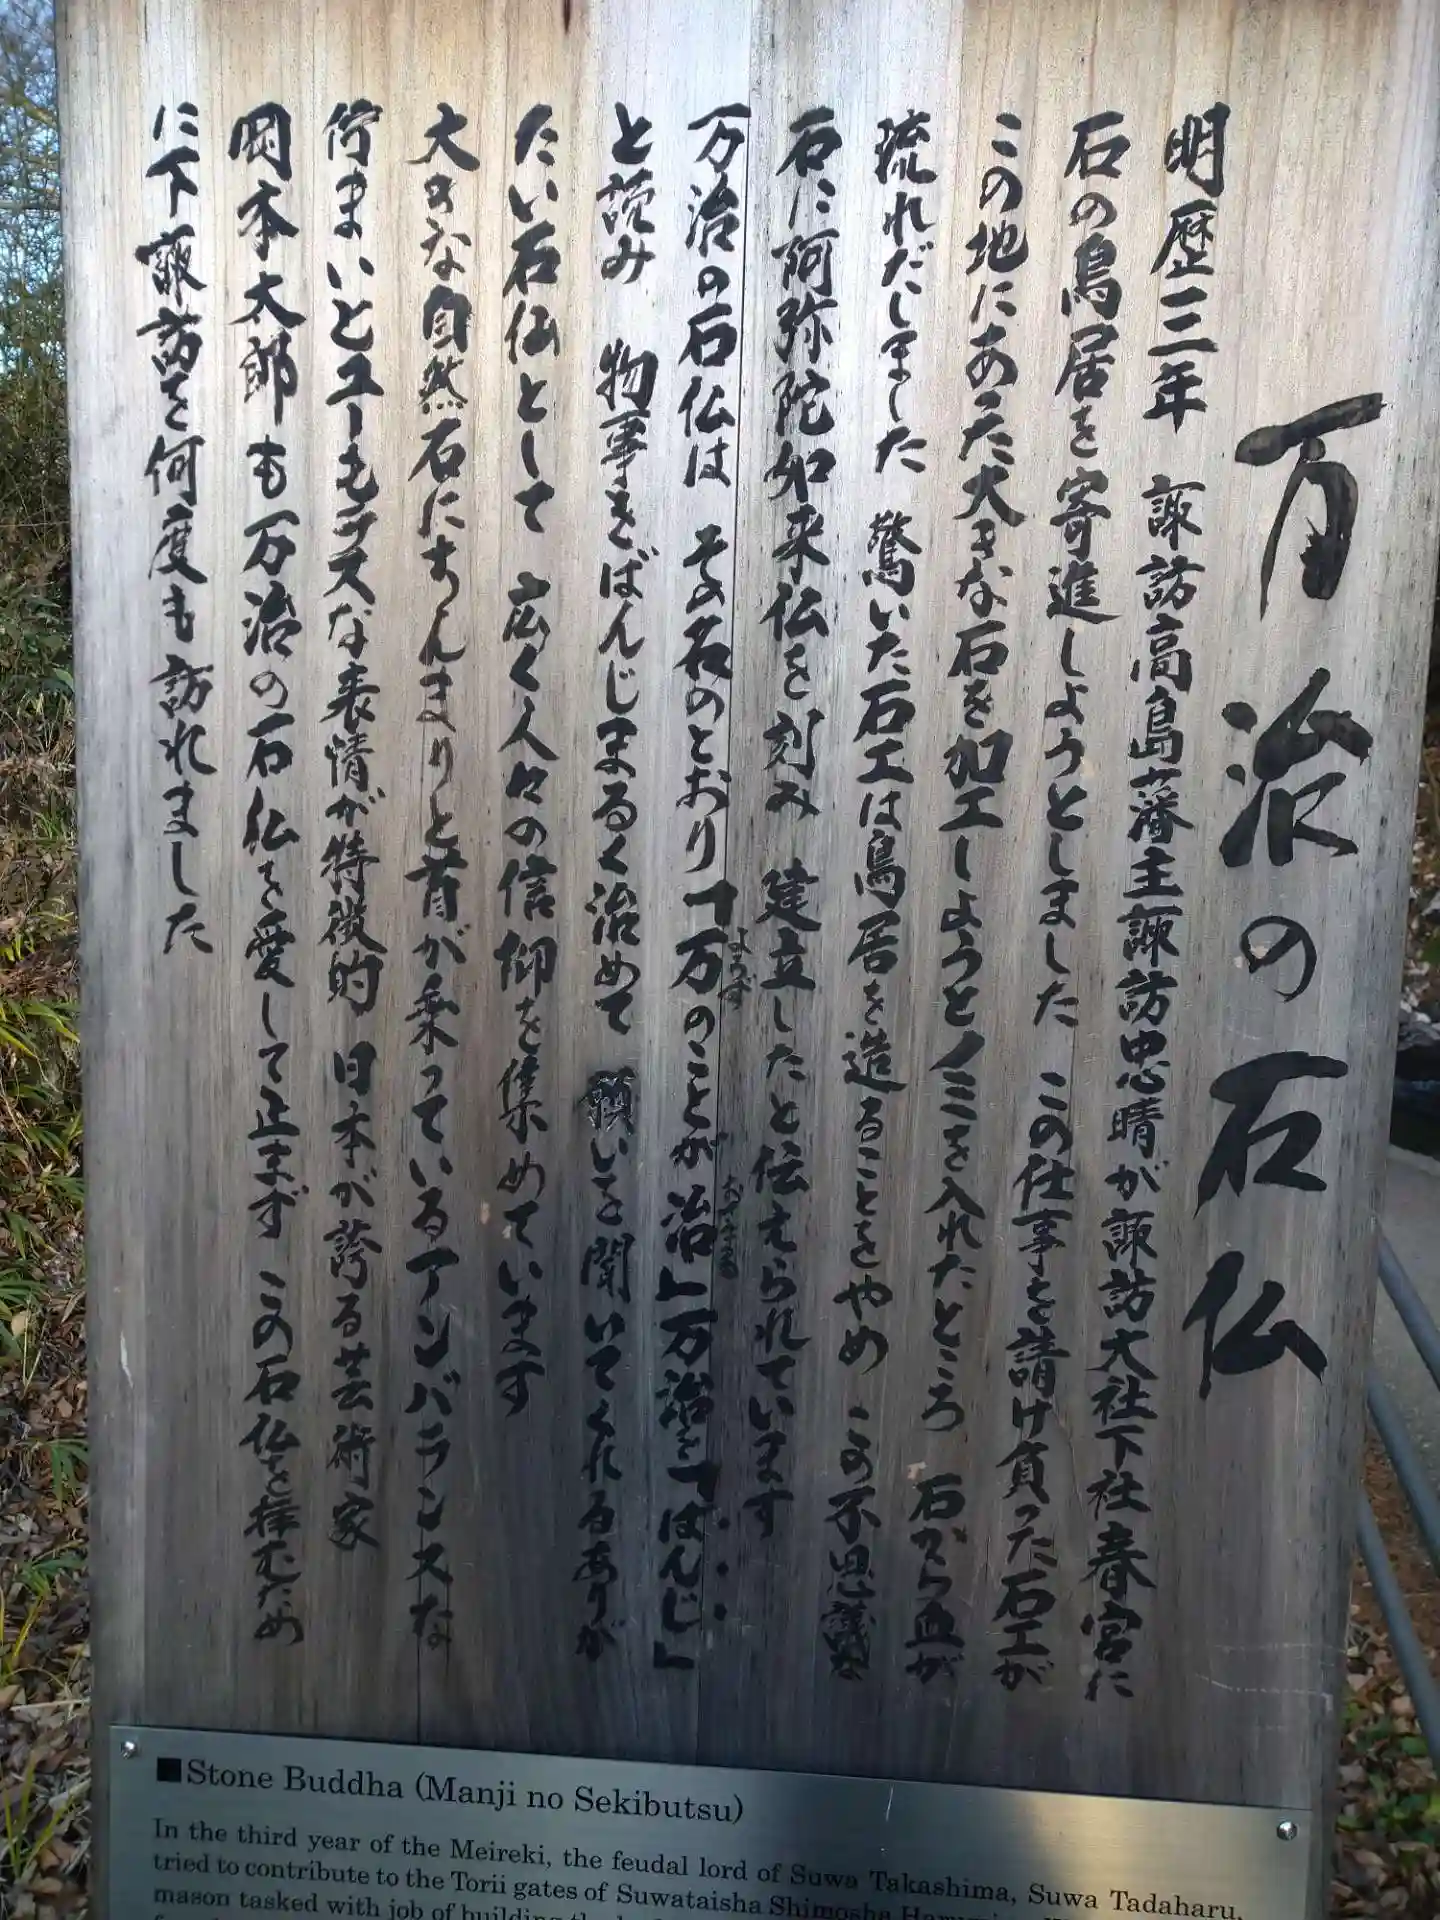 万治の石仏
明歴三年 諏訪高島藩主諏訪忠晴が諏訪大社下社春宮に
石の鳥居を寄進しようとしました この仕事を請け負った石工が
この地にあった大きな石を加工しようとノミを入れたところ 石から血が
流れだしました 驚いた石工は鳥居を造ることをやめ この不思議な
石に阿弥陀如来仏を刻み 建立したと伝えられています
万治の石仏は その名のとおり「万のことが治」万治を「ばんじ」
よろず
おさまる
と読み 物事をばんじまるく治めて 願いを聞いてくれるありが
たい石仏として 広く人々の信仰を集めています
大きな自然石にちんまりと首が乗っているアンバランスな
佇まいとユーモラスな表情が特徴的 日本が誇る芸術家
岡本太郎も万治の石仏を愛して止まず この石仏を拝むため
に下諏訪を何度も訪れました
■Stone Buddha (Manji no Sekibutsu)
In the third year of the Meireki, the feudal lord of Suwa Takashima, Suwa Tadaharu,
tried to contribute to the Torii gates of Suwataisha Shimosha
mason tasked with job of building